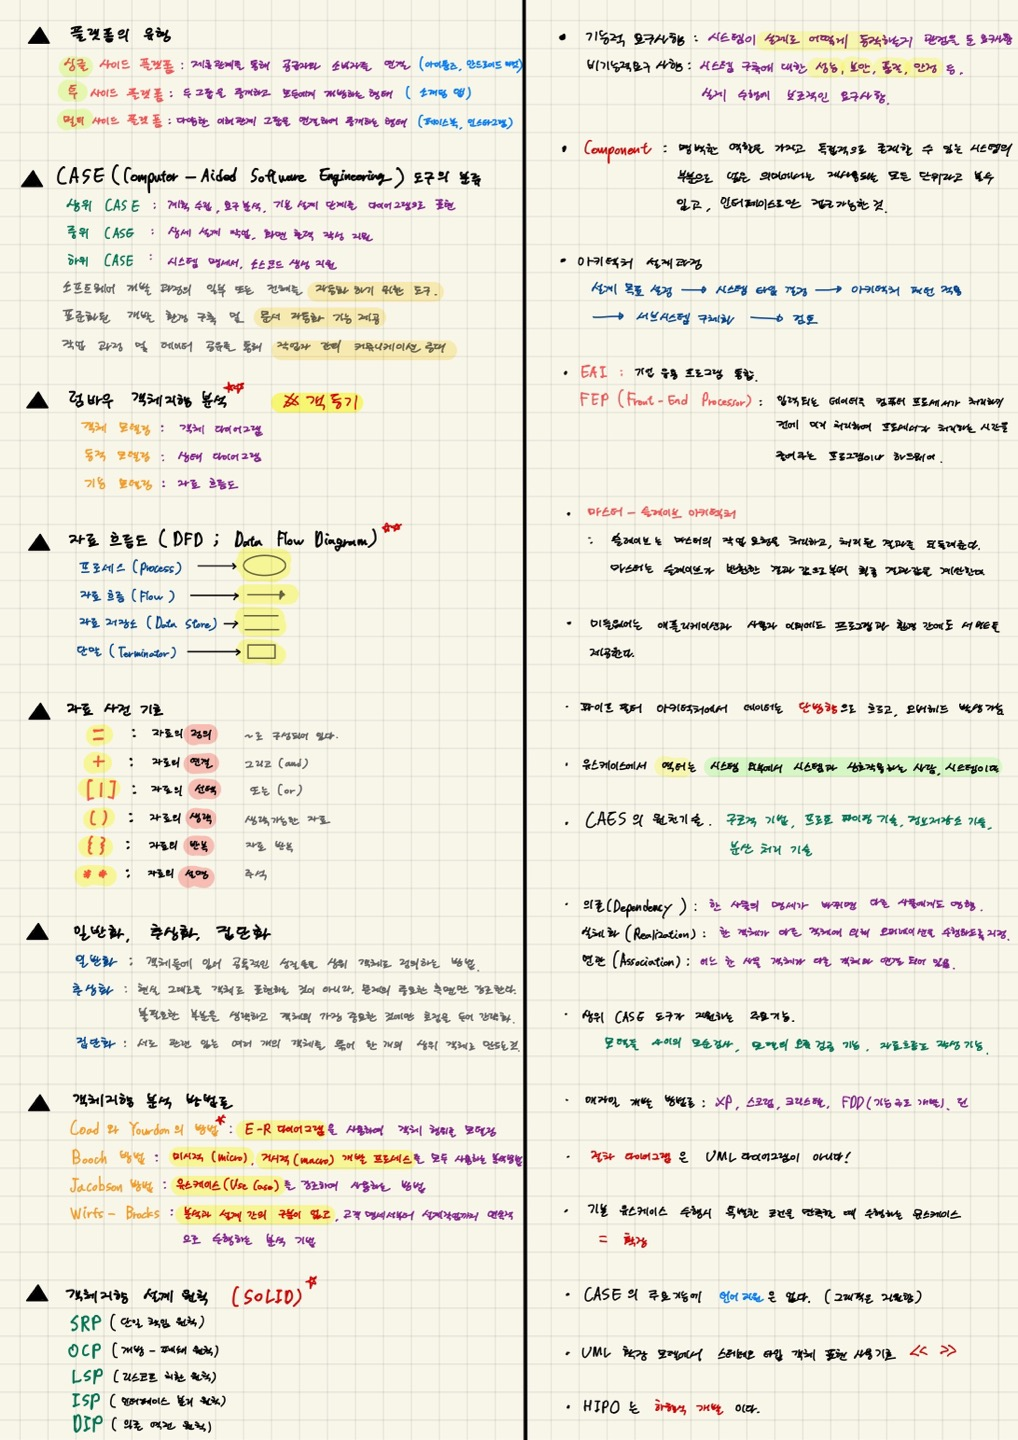 ▲ 플랫폼의 유형
싱글 사이드 플랫폼 : 제휴관계를 통해 공급자와 소비자를 연결 (아이튠즈, 안드로이드 마켓)
투 사이드 플랫폼 : 두 그룹을 중개하고 모두에게 개방하는 형태 ( 소개팅 앱)
멀티 사이드 플랫폼 : 다양한 이해관계 그룹을 연결하여 중개하는 형태 (페이스북, 인스타그램)
▲ CASE (Computer - Aided Software Engineering) 도구의 분류
상위 CASE : 계획 수립, 요구 분석, 기본 설계 단계를 다이어그램으로 표현
중위 CASE : 상세 설계 작업, 화면 출력 작성 지원
하위 CASE : 시스템 명세서, 소스코드 생성 지원
소프트웨어 개발 과정의 일부 또는 전체를 자동화 하기 위한 도구.
표준화된 개발 환경 구축 및 문서 자동화 기능 제공
작업 과정 및 데이터 공유를 통해 작업자 간의 커뮤니케이션 증대
▲ 럼바우 객체지향 분석☆☆ ※ 객동기
객체 모델링 : 객체 다이어그램
동적 모델링 : 상태 다이어그램
기능 모델링 : 자료 흐름도
▲ 자료 흐름도 (DFD ; Data Flow Diagram)☆☆
프로세스 (Process) →
자료 흐름 (Flow ) →
자료 저장소 (Data Store) →
단말 (Terminator) →
▲ 자료 사전 기호
= : 자료의 정의 ~로 구성되어 있다.
+ : 자료의 연결 그리고 (and)
[ | ] : 자료의 선택 또는 (or)
( ) : 자료의 생략 생략가능한 자료
{ } : 자료의 반복 자료 반복
* * : 자료의 설명 주석
▲ 일반화, 추상화, 집단화
일반화 : 객체들에 있어 공통적인 성질들을 상위 객체로 정의하는 방법.
추상화 : 현실 그대로를 객체로 표현하는 것이 아니라, 문제의 중요한 측면만 강조한다.
불필요한 부분을 생략하고 객체의 가장 중요한 것에만 초점을 두어 간략화.
집단화 : 서로 관련 있는 여러 개의 객체를 묶어 한 개의 상위 객체로 만드는것.
▲ 객체지향 분석 방법론
Coad 와 Yourdon 의 방법☆ : E-R 다이어그램을 사용하여 객체 행위를 모델링
Booch 방법 : 미시적 (micro), 거시적 (macro) 개발 프로세스를 모두 사용하는 분석방법
Jacobson 방법 : 유스케이스 (Use Case) 를 강조하여 사용하는 방법
Wirfs - Brocks : 분석과 설계 간의 구분이 없고, 고객 명세서부터 설계작업까지 연속적
으로 수행하는 분석 기법
▲ 객체지향 설계 원칙 (SOLID)☆
SRP ( 단일 책임 원칙)
OCP ( 개방 - 폐쇄 원칙)
LSP ( 리스코프 치환 원칙)
ISP ( 인터페이스 분리 원칙)
DIP ( 의존 역전 원칙)
• 기능적 요구사항 : 시스템이 실제로 어떻게 동작하는지 관점을 둔 요구사항
비기능적요구 사항 : 시스템 구축에 대한 성능, 보안, 품질, 안정 등.
실제 수행에 보조적인 요구사항.
• Component : 명백한 역할을 가지고 독립적으로 존재할 수 있는 시스템의
부분으로 넓은 의미에서는 재사용되는 모든 단위라고 볼수
있고, 인터페이스로만 접근가능한 것.
• 아키텍처 설계과정
설계 목표 설정 → 시스템 타입 결정 → 아키텍처 패턴 적용
→ 서브시스템 구체화 → 검토
• EAI : 기업 응용 프로그램 통합.
FEP (Front-End Processor) : 입력되는 데이터를 컴퓨터 프로세서가 처리하기
전에 미리 처리하여 프로세서가 처리하는 시간을
줄여주는 프로그램이나 하드웨어.
• 마스터 - 슬레이브 아키텍처
: 슬레이브는 마스터의 작업 요청을 처리하고, 처리된 결과를 되돌려준다.
마스터는 슬레이브가 반환한 결과 값으로부터 최종 결과값을 계산한다
• 미들웨어는 애플리케이션과 사용자 이외에도 프로그램과 환경 간에도 서비스를
제공한다.
• 파이프 필터 아키텍처에서 데이터는 단방향으로 흐르고, 오버헤드 발생가능
• 유스케이스에서 액터는 시스템 외부에서 시스템과 상호작용하는 사람, 시스템이다
• CAES 의 원천기술. 구조적 기법, 프로토 타이핑 기술, 정보저장소 기술,
분산 처리 기술
• 의존(Dependency ) : 한 사물의 명세가 바뀌면 다른 사물에게도 영향.
실체화 (Realization) : 한 객체가 다른 객체에 의해 오퍼레이션을 수행하도록 지정.
연관 (Association) : 어느 한 사물 객체가 다른 객체와 연결 되어 있음.
• 상위 CASE 도구가 지원하는 주요기능.
모델들 사이의 모순검사, 모델의 오류 검증 기능, 자료흐름도 작성기능.
• 애자일 개발 방법론 : XP, 스크럼, 크리스탈, FDD (기능 주도 개발), 린
• 절차 다이어그램 은 UML 다이어그램이 아니다!
• 기본 유스케이스 수행시 특별한 조건을 만족할 때 수행하는 유스케이스
= 확장
• CASE 의 주요기능에 언어지원 은 없다. (그래픽은 지원함)
• UML 확장 모델에서 스테레오 타입 객체 표현 사용기호 << >>
• HIPO 는 하향식 개발 이다.